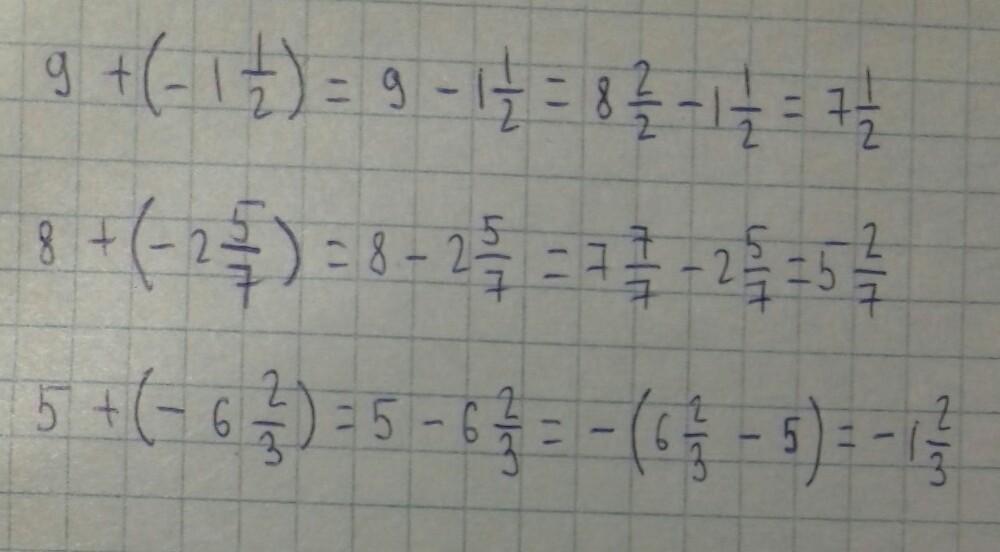 9 + (- 1 1/2) = 9 - 1 1/2 = 8 2/2 - 1 1/2 = 7 1/2
8 + (- 2 5/7) = 8 - 2 5/7 = 7 7/7 - 2 5/7 = 5 2/7
5 + (- 6 2/3) = 5 - 6 2/3 = - (6 2/3 - 5) = - 1 2/3